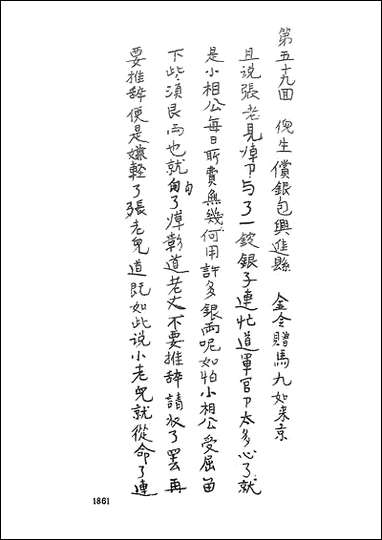 第五十九回　倪生償銀包興進縣　金令贈馬九如来京
且说張老見韓卩与了一錠銀子連忙道軍官卩太多心了就
是小相公每日所費無幾何用許多銀兩呢如怕小相公受屈留
下些湏艮兩也就勾了韓彰道老丈不要推辞請收了罷再
要推辞便是嫌輕了張老兒道既如此说小老兒就從命了連
1861